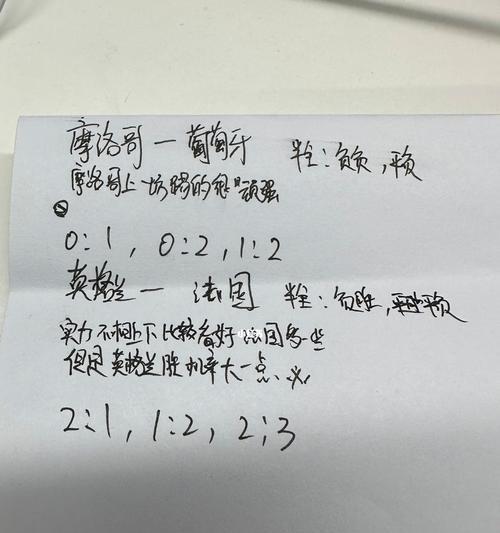 摩洛哥一葡萄牙 半全：负负，平负
摩洛哥上一场踢的很顽强
0:1，0:2，1:2
英格兰一 法国 半全：负胜，平负
实力不相上下比较看好法国多一些
但是英格兰胜机率大一点
2:1，1:2，2:3